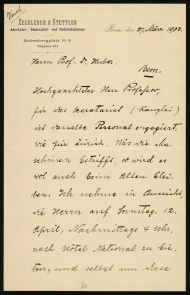 ZEERLEDER & STETTLER
Bern, den 27. März 1903.
Herrn Prof. Dr. Huber
Bern.
Hochgeachteter Herr Professor,
für das Secretariat (Kanzlei)
ist dasselbe Personal engagiert,
wie für Zürich. Was die Ma-
schinen betrifft, so wird es
wol auch beim Alten bleiben.
Ich nehme in Aussicht,
die Herren auf Sonntag, 12.
April, Nachmittags 4 Uhr,
nach Hôtel National zu bit-
ten, und selbst um diese